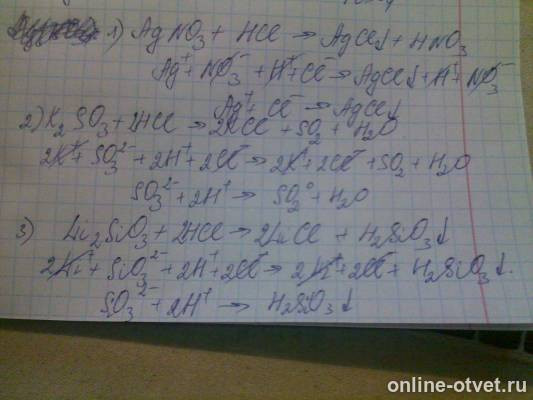 1) AgNO₃ + HCl → AgCl↓ + HNO₃
Ag⁺ + NO₃⁻ + H⁺ + Cl⁻ → AgCl↓ + H⁺ + NO₃⁻
Ag⁺ + Cl⁻ → AgCl↓
2) K₂SO₃ + 2HCl → 2KCl + SO₂ + H₂O
2K⁺ + SO₃²⁻ + 2H⁺ + 2Cl⁻ → 2K⁺ + 2Cl⁻ + SO₂ + H₂O
SO₃²⁻ + 2H⁺ → SO₂⁰ + H₂O
3) Li₂SiO₃ + 2HCl → 2LiCl + H₂SiO₃↓
2Li⁺ + SiO₃²⁻ + 2H⁺ + 2Cl⁻ → 2Li⁺ + 2Cl⁻ + H₂SiO₃↓.
SO₃²⁻ + 2H⁺ → H₂SiO₃↓
online-otvet.ru